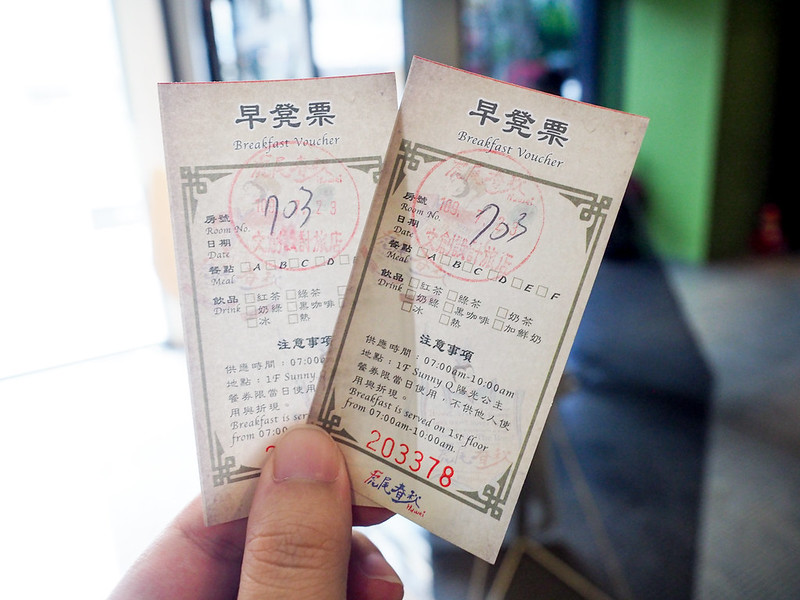 早凳票
Breakfast Voucher
703
房號
Room No.
日期
Date
餐點 □A □B □C □D
Meal
飲品 □紅茶 □綠茶
Drink □奶綠 □黑咖啡
□冰 □熱
注意事項
供應時間：07:00
地點：1F Sunny
餐券限當日使用
用與折現。
Breakfast is serv
from 07:00
早凳票
Breakfast Voucher
703
房號
Room No.
日期
Date
餐點 □A □B □C □D □E □F
Meal
飲品 □紅茶 □綠茶 □奶茶
Drink □奶綠 □黑咖啡 □加鮮奶
□冰 □熱
注意事項
供應時間：07:00am-10:00am
地點：1F Sunny Q陽光公主
餐券限當日使用，不供他人使
用與折現。
Breakfast is served on 1st floor
from 07:00am-10:00am.
203378
虎尾春秋